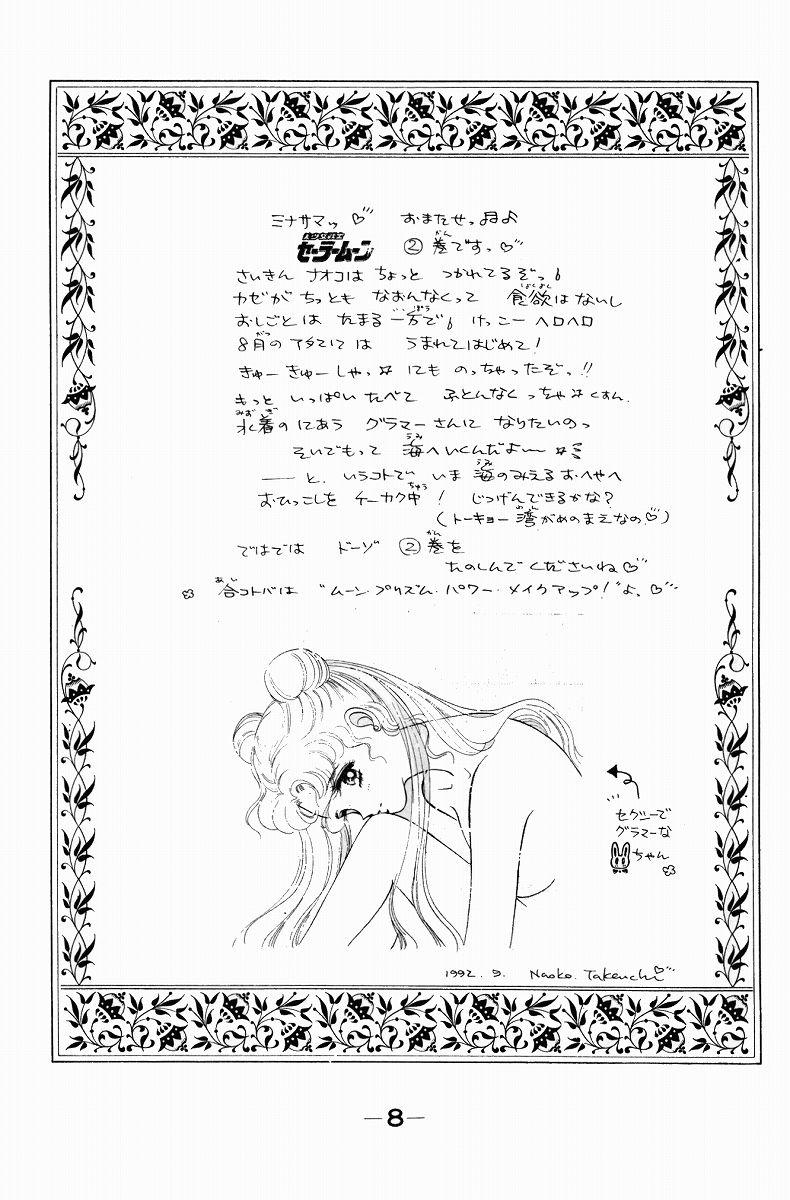 ミナサマッ♡ おまたせっ♬♪
美少女戦士 セーラームーン ②巻ですっ♡
さいきん ナオコは ちょっと つかれてるぞっ
カゼが ちっとも なおんなくって 食欲はないし
おしごとは たまる一方で けっこーヘロヘロ
8月の アタマには うまれてはじめて!
きゅーきゅーしゃっ☆ にも のっちゃったぞっ!!
もっと いっぱい たべて ふとんなくっちゃ☆くすん.
水着の にあう グラマーさんに なりたいのっ
そいでもって 海へいくんだよ〜☆
――と、いうコトで いま 海のみえるおへやへ
おひっこしを ケーカク中! じつげんできるかな?
(トーキョー湾がめのまえなの♡)
ではでは ドーゾ ②巻を
たのしんで くださいね♡
合コトバは "ムーン・プリズム・パワー・メイクアップ!"よ、♡
セクシーで
グラマーな
ちゃん
1992.9. Naoko.Takeuchi♡
—8—